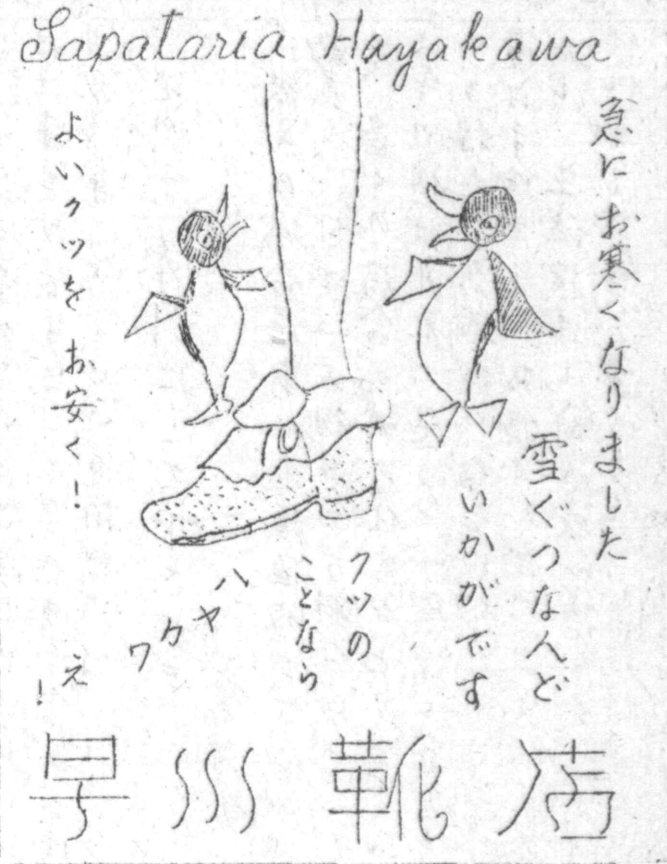 Sapataria Hayakawa
急にお寒くなりました
雪ぐつなんど
いかがです
クツの
ことなら
ハヤカワ
え!
よいクツをお安く!
早川靴店